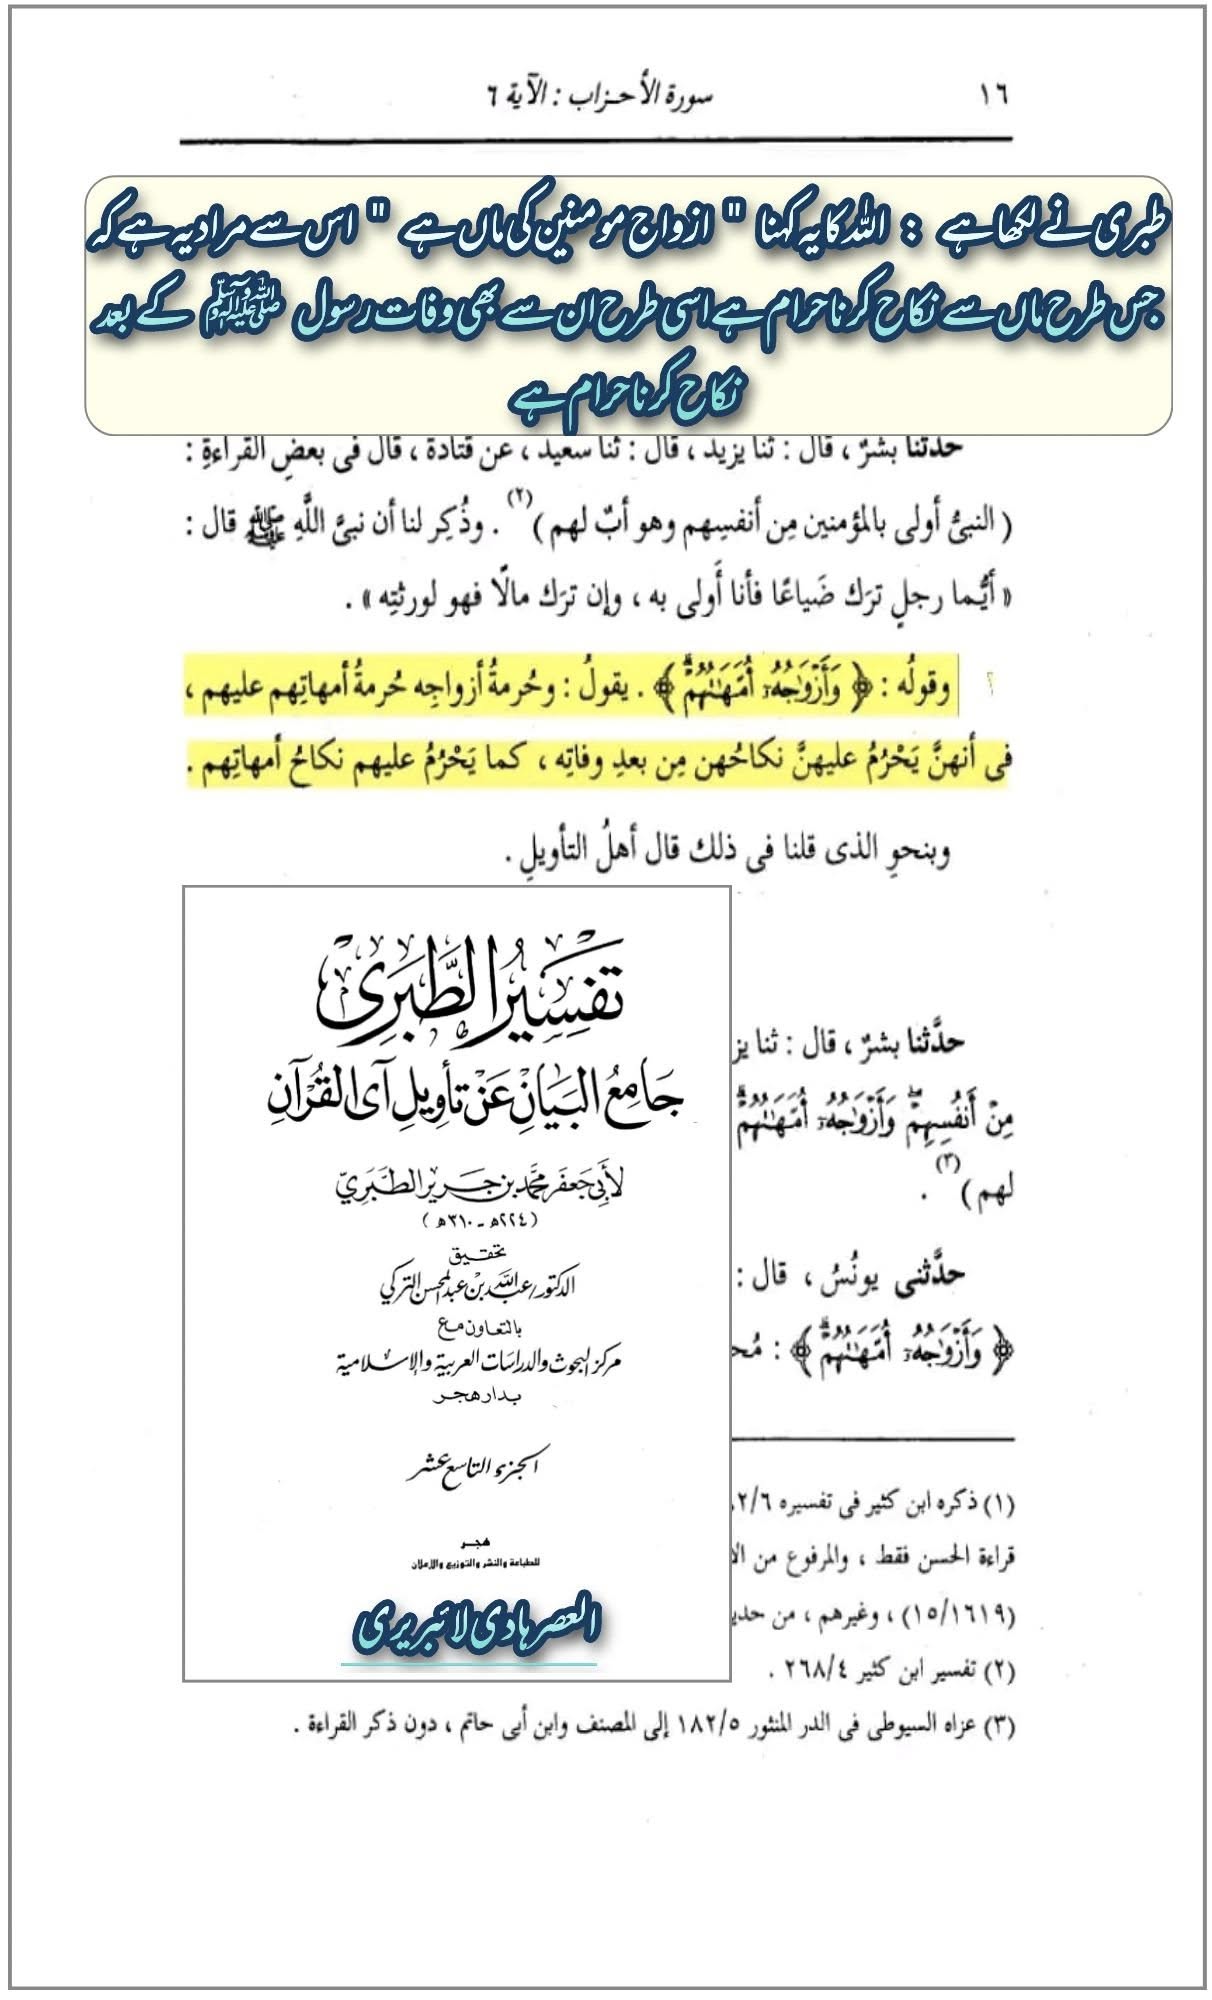 ١٦
سورة الأحزاب : الآية ٦
طبری نے لکھا ہے : اللہ کا یہ کہنا " ازواج مومنین کی ماں ہے " اس سے مراد یہ ہے کہ
جس طرح ماں سے نکاح کرنا حرام ہے اسی طرح ان سے بھی وفات رسول ﷺ کے بعد
نکاح کرنا حرام ہے
حدثنا بشرٌ ، قال : ثنا يزيد ، قال : ثنا سعيد ، عن قتادة ، قال فى بعضِ القراءةِ :
( النبىُّ أولى بالمؤمنين مِن أنفسِهم وهو أبٌ لهم )(٢) . وذُكِر لنا أن نبىَّ اللَّهِ ﷺ قال :
« أيُّما رجلٍ ترَك ضَياعًا فأنا أَولى به ، وإن ترَك مالًا فهو لورثتِه » .
وقولُه : ﴿ وَأَزْوَٰجُهُۥٓ أُمَّهَـٰتُهُمْۗ ﴾ . يقولُ : وحُرمةُ أزواجِه حُرمةُ أمهاتِهم عليهم ،
فى أنهنَّ يَحْرُمُ عليهنَّ نكاحُهن مِن بعدِ وفاتِه ، كما يَحْرُمُ عليهم نكاحُ أمهاتِهم .
وبنحوِ الذى قلنا فى ذلك قال أهلُ التأويلِ .
حدَّثنا بشرٌ ، قال : ثنا يز
مِنْ أَنفُسِهِمْۖ وَأَزْوَٰجُهُۥٓ أُمَّهَـٰتُهُمْۗ
لهم )(٣) .
حدَّثنى يونُسُ ، قال :
﴿ وَأَزْوَٰجُهُۥٓ أُمَّهَـٰتُهُمْۗ ﴾ : مُح
(١) ذكره ابن كثير فى تفسيره ٢/٦
قراءة الحسن فقط ، والمرفوع من الا
(١٥/١٦١٩) ، وغيرهم ، من حدي
(٢) تفسير ابن كثير ٢٦٨/٤ .
(٣) عزاه السيوطى فى الدر المنثور ١٨٢/٥ إلى المصنف وابن أبى حاتم ، دون ذكر القراءة .
تَفْسِيرُ الطَّبَرِيّ
جَامِعُ البَيَانِ عَنْ تَأْوِيلِ آيِ القُرْآنِ
لأبي جعفر محمد بن جرير الطبري
( ٢٢٤ هـ - ٣١٠ هـ )
تحقيق
الدكتور/ عبد الله بن عبد المحسن التركي
بالتعاون مع
مركز البحوث والدراسات العربية والإسلامية
بدار هجر
الجزء التاسع عشر
هجر
للطباعة والنشر والتوزيع والإعلان
العصر ہادی لائبریری